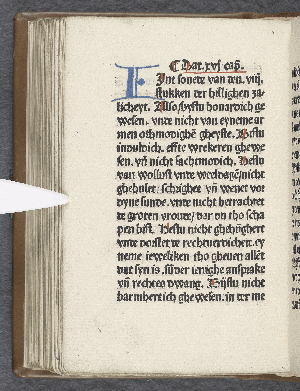 Dat .xvj. cap̄.
Int sonete van den .viij.
stukken der hillighen za-
licheyt. Also bystu houardich ge
wesen. vnde nicht van eyneme ar
men othmodighē gheyste. Bistu
induldich. effte wrekeren ghewe
sen. vn̄ nicht sachtmodich. Bestu
van wollust vnde weeldagē nicht
ghehulet schrighet vn̄ wenet vor
dyne sunde. vnde nicht betrachtet
de groten vroude dar du tho scha
pen bist. Bestu nicht ghehūghert
vnde dorstet de rechtuerdicheit. ey
neme ieweliken tho gheuen allēt
dat syn is. sūder ienighe ansprake
vn̄ rechtes dwang. Bistu nicht
barmhertich ghewesen. in der me